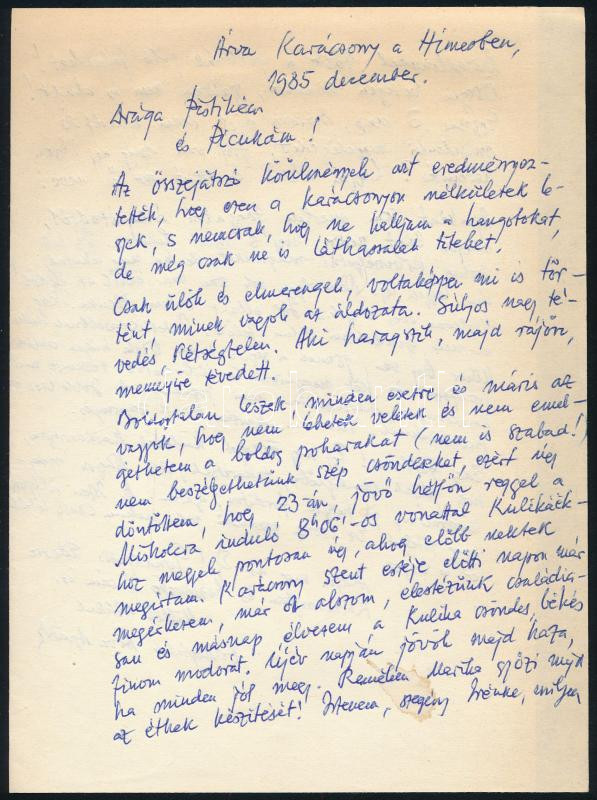 Árva Karácsony a Hímesben,
1985 december.
Drága Pistikém
és Picukám!
Az összejátszó körülmények azt eredményez-
ték, hogy ezen a karácsonyon nélkületek le-
szek, s nemcsak, hogy ne halljam a hangotokat,
de még csak ne is láthassalak titeket.
Csak ülök és elmerengek, voltaképpen mi is tör-
tént, minek vagyok az áldozata. Súlyos nagy té-
vedés kétségtelen. Aki haragszik, majd rájön,
mennyire tévedett.
Boldogtalan leszek minden esetre és máris az
vagyok, hogy nem lehetek veletek és nem emel-
gethetem a boldog poharakat (nem is szabad!)
nem beszélgethetünk szép csöndeseket, ezért úgy
döntöttem, hogy 23-án, jövő hétfőn reggel a
Miskolcra induló 8h06'-os vonattal Kulikáék-
hoz megyek pontosan úgy, ahogy előbb nektek
megírtam. Karácsony szent estéje előtti napon már
megérkezem, már ott alszom, elestézünk családia-
san és másnap élvezem a Kulika csöndes, békés
finom modorát. Újév napján jövök majd haza,
ha minden jól megy. Remélem Marika győzi majd
az étkek készítését! Istenem, szegény Irénke, milyen